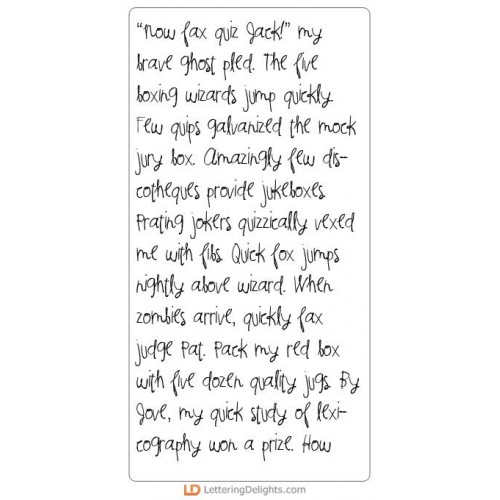 "Now fax quiz Jack!" my
brave ghost pled. The five
boxing wizards jump quickly.
Few quips galvanized the mock
jury box. Amazingly few dis-
cotheques provide jukeboxes.
Prating jokers quizzically vexed
me with fibs. Quick fox jumps
nightly above wizard. When
zombies arrive, quickly fax
judge Pat. Pack my red box
with five dozen quality jugs. By
Jove, my quick study of lexi-
cography won a prize. How
LD LetteringDelights.com